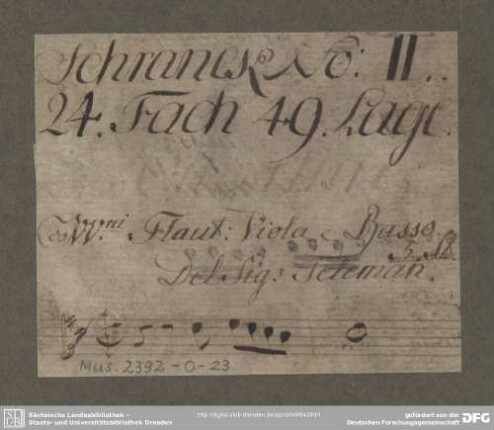 Schranck No: II..
24. Fach 49. Lage.
Co VV.ni Flaut: Viola e Basso.
5. St.
Del Sig: Teleman.
Mus. 2392-O-23
Sächsische Landesbibliothek -
Staats- und Universitätsbibliothek Dresden
gefördert von der
Deutschen Forschungsgemeinschaft
DFG